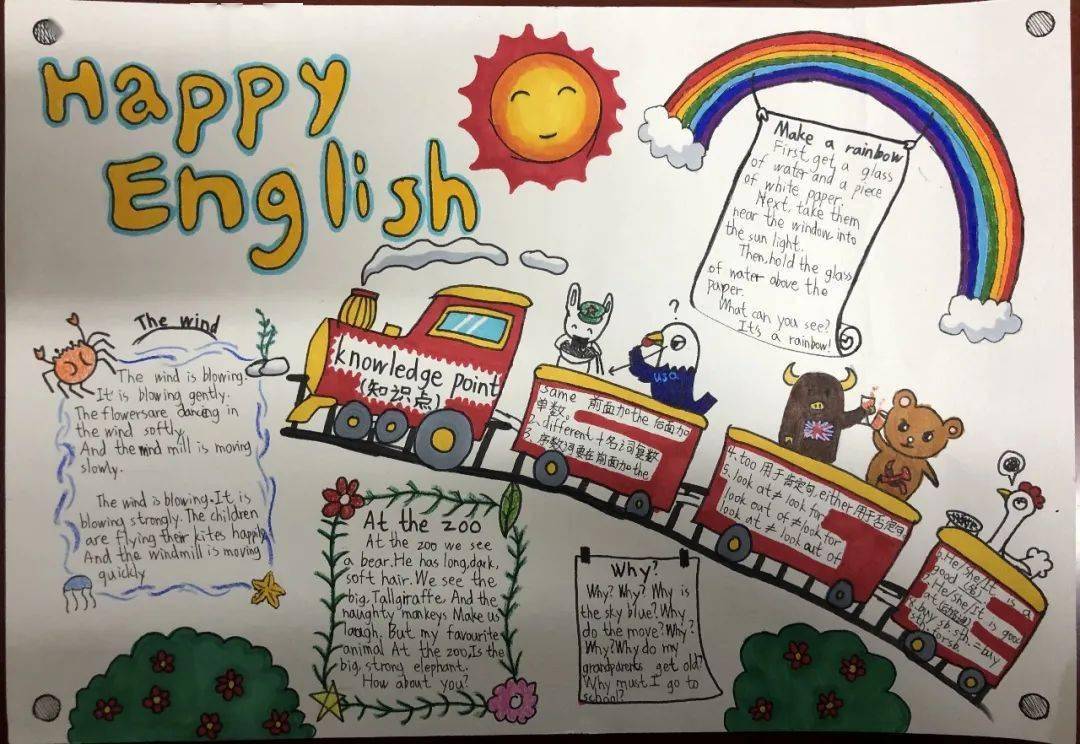 Happy
English
Make a rainbow
First, get a glass
of water and a piece
of white paper.
Next, take them
near the window, into
the sun light.
Then, hold the glass
of water above the
paper.
What can you see?
It's a rainbow!
The wind
The wind is blowing.
It is blowing gently.
The flowersare dancing in
the wind softly.
And the wind mill is moving
slowly.
The wind is blowing. It is
blowing strongly. The children
are flying their kites happily
And the windmill is moving
quickly
knowledge point
(知识点)
?
USA
same 前面加the 后面加
单数。
2. different + 名词复数
3. 序数词要在前面加the
4. too 用于肯定句, either 用于否定句
5. look at ≠ look for
look out of ≠ look for
look at ≠ look out of
6. He/She/It is a
good
7. He/She/It is good
at
8. buy sb. sth. = buy
sth. for sb.
At the zoo
At the zoo we see
a bear. He has long, dark,
soft hair. We see the
big, Tallgiraffe, And the
naughty mankeys Make us
laugh, But my favourite
animal At the zoo, Is the
big, strong elephant.
How about you?
Why?
Why? Why? Why is
the sky blue? Why
do the move? Why?
Why? Why do my
grandparents get old?
Why must I go to
school?